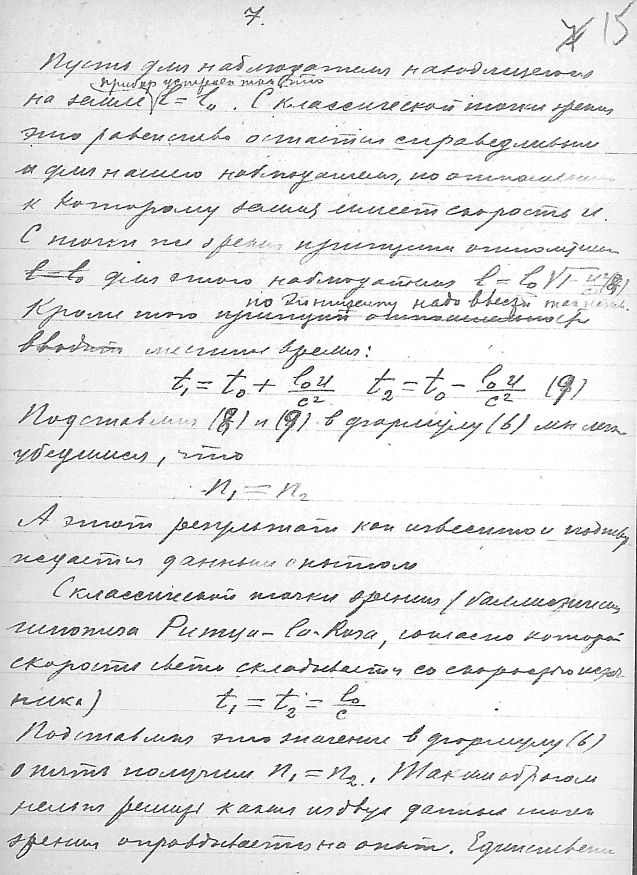 7.
15
Пусть для наблюдателя находящегося
прибор устроен так что
на земле l = l₀. С классической точки зрения
это равенство остается справедливым
и для нашего наблюдателя, по отношению
к которому земля имеет скорость u.
С точки же зрения принципа относит.
l = l₀ для этого наблюдателя l = l₀ √1 - u²/c² (8)
по принципу надо ввести так
Кроме того принцип относительности
вводит местное время:
t₁ = t₀ + l₀u/c² t₂ = t₀ - l₀u/c² (9)
Подставляя (8) и (9) в формулу (6) мы легко
убедимся, что
n₁ = n₂
А этот результат как известно и подтвер
ждается данными опытом
С классической точки зрения (баллистическ
гипотеза Ритца - La-Rosa, согласно которой
скорость света складывается со скоростью источ
ника) t₁ = t₂ = l₀/c
Подставляя это значение в формулу (6)
опять получим n₁ = n₂. Таким образом
нельзя решить какая из двух данных точек
зрения оправдывается на опыте. Единственн